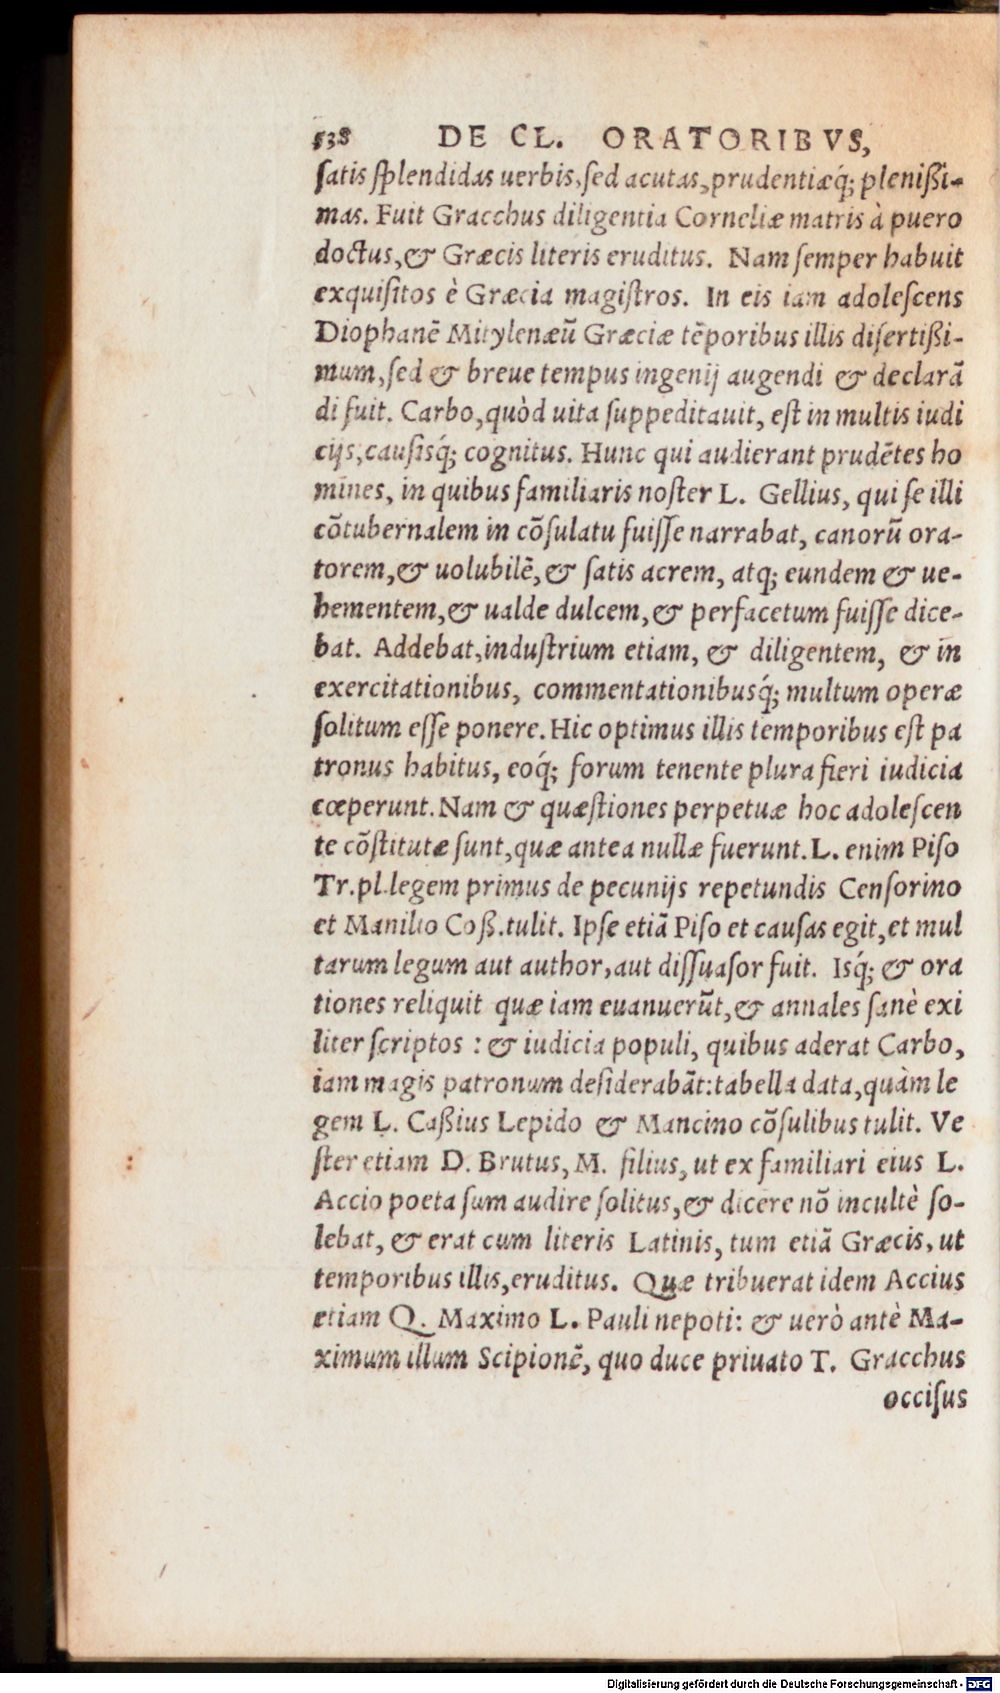 538 DE CL. ORATORIBVS,
ſatis ſplendidas uerbis, ſed acutas, prudentiæq́; plenißi-
mas. Fuit Gracchus diligentia Corneliæ matris à puero
doctus, & Græcis literis eruditus. Nam ſemper habuit
exquiſitos è Græcia magiſtros. In eis iam adoleſcens
Diophanē Mitylenæū Græciæ tēporibus illis diſertißi-
mum, ſed & breue tempus ingenij augendi & declarā
di fuit. Carbo, quòd uita ſuppeditauit, eſt in multis iudi
cijs, cauſisq́; cognitus. Hunc qui audierant prudētes ho
mines, in quibus familiaris noſter L. Gellius, qui ſe illi
cōtubernalem in cōſulatu fuiſſe narrabat, canorū ora-
torem, & uolubilē, & ſatis acrem, atq; eundem & ue-
hementem, & ualde dulcem, & perfacetum fuiſſe dice-
bat. Addebat, induſtrium etiam, & diligentem, & in
exercitationibus, commentationibusq́; multum operæ
ſolitum eſſe ponere. Hic optimus illis temporibus eſt pa
tronus habitus, eoq́; forum tenente plura fieri iudicia
cœperunt. Nam & quæſtiones perpetuæ hoc adoleſcen
te cōſtitutæ ſunt, quæ antea nullæ fuerunt. L. enim Piſo
Tr. pl. legem primus de pecunijs repetundis Cenſorino
et Manilio Coß. tulit. Ipſe etiā Piſo et cauſas egit, et mul
tarum legum aut author, aut diſſuaſor fuit. Isq́; & ora
tiones reliquit quæ iam euanuerūt, & annales ſanè exi
liter ſcriptos : & iudicia populi, quibus aderat Carbo,
iam magis patronum deſiderabāt: tabella data, quàm le
gem L. Caßius Lepido & Mancino cōſulibus tulit. Ve
ſter etiam D. Brutus, M. filius, ut ex familiari eius L.
Accio poeta ſum audire ſolitus, & dicere nō incultè ſo-
lebat, & erat cum literis Latinis, tum etiā Græcis, ut
temporibus illis, eruditus. Quæ tribuerat idem Accius
etiam Q. Maximo L. Pauli nepoti: & uerò antè Ma-
ximum illum Scipionē, quo duce priuato T. Gracchus
occiſus
Digitalisierung gefördert durch die Deutsche Forschungsgemeinschaft - DFG